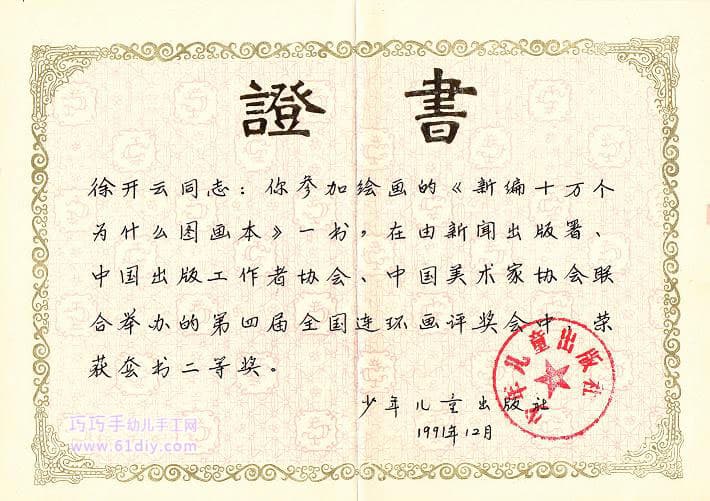 證書
徐开云同志：你参加绘画的《新编十万个
为什么图画本》一书，在由新闻出版署、
中国出版工作者协会、中国美术家协会联
合举办的第四届全国连环画评奖会中，荣
获套书二等奖。
少年儿童出版社
1991年12月
少年儿童出版社
巧巧手幼儿手工网
www.61diy.com